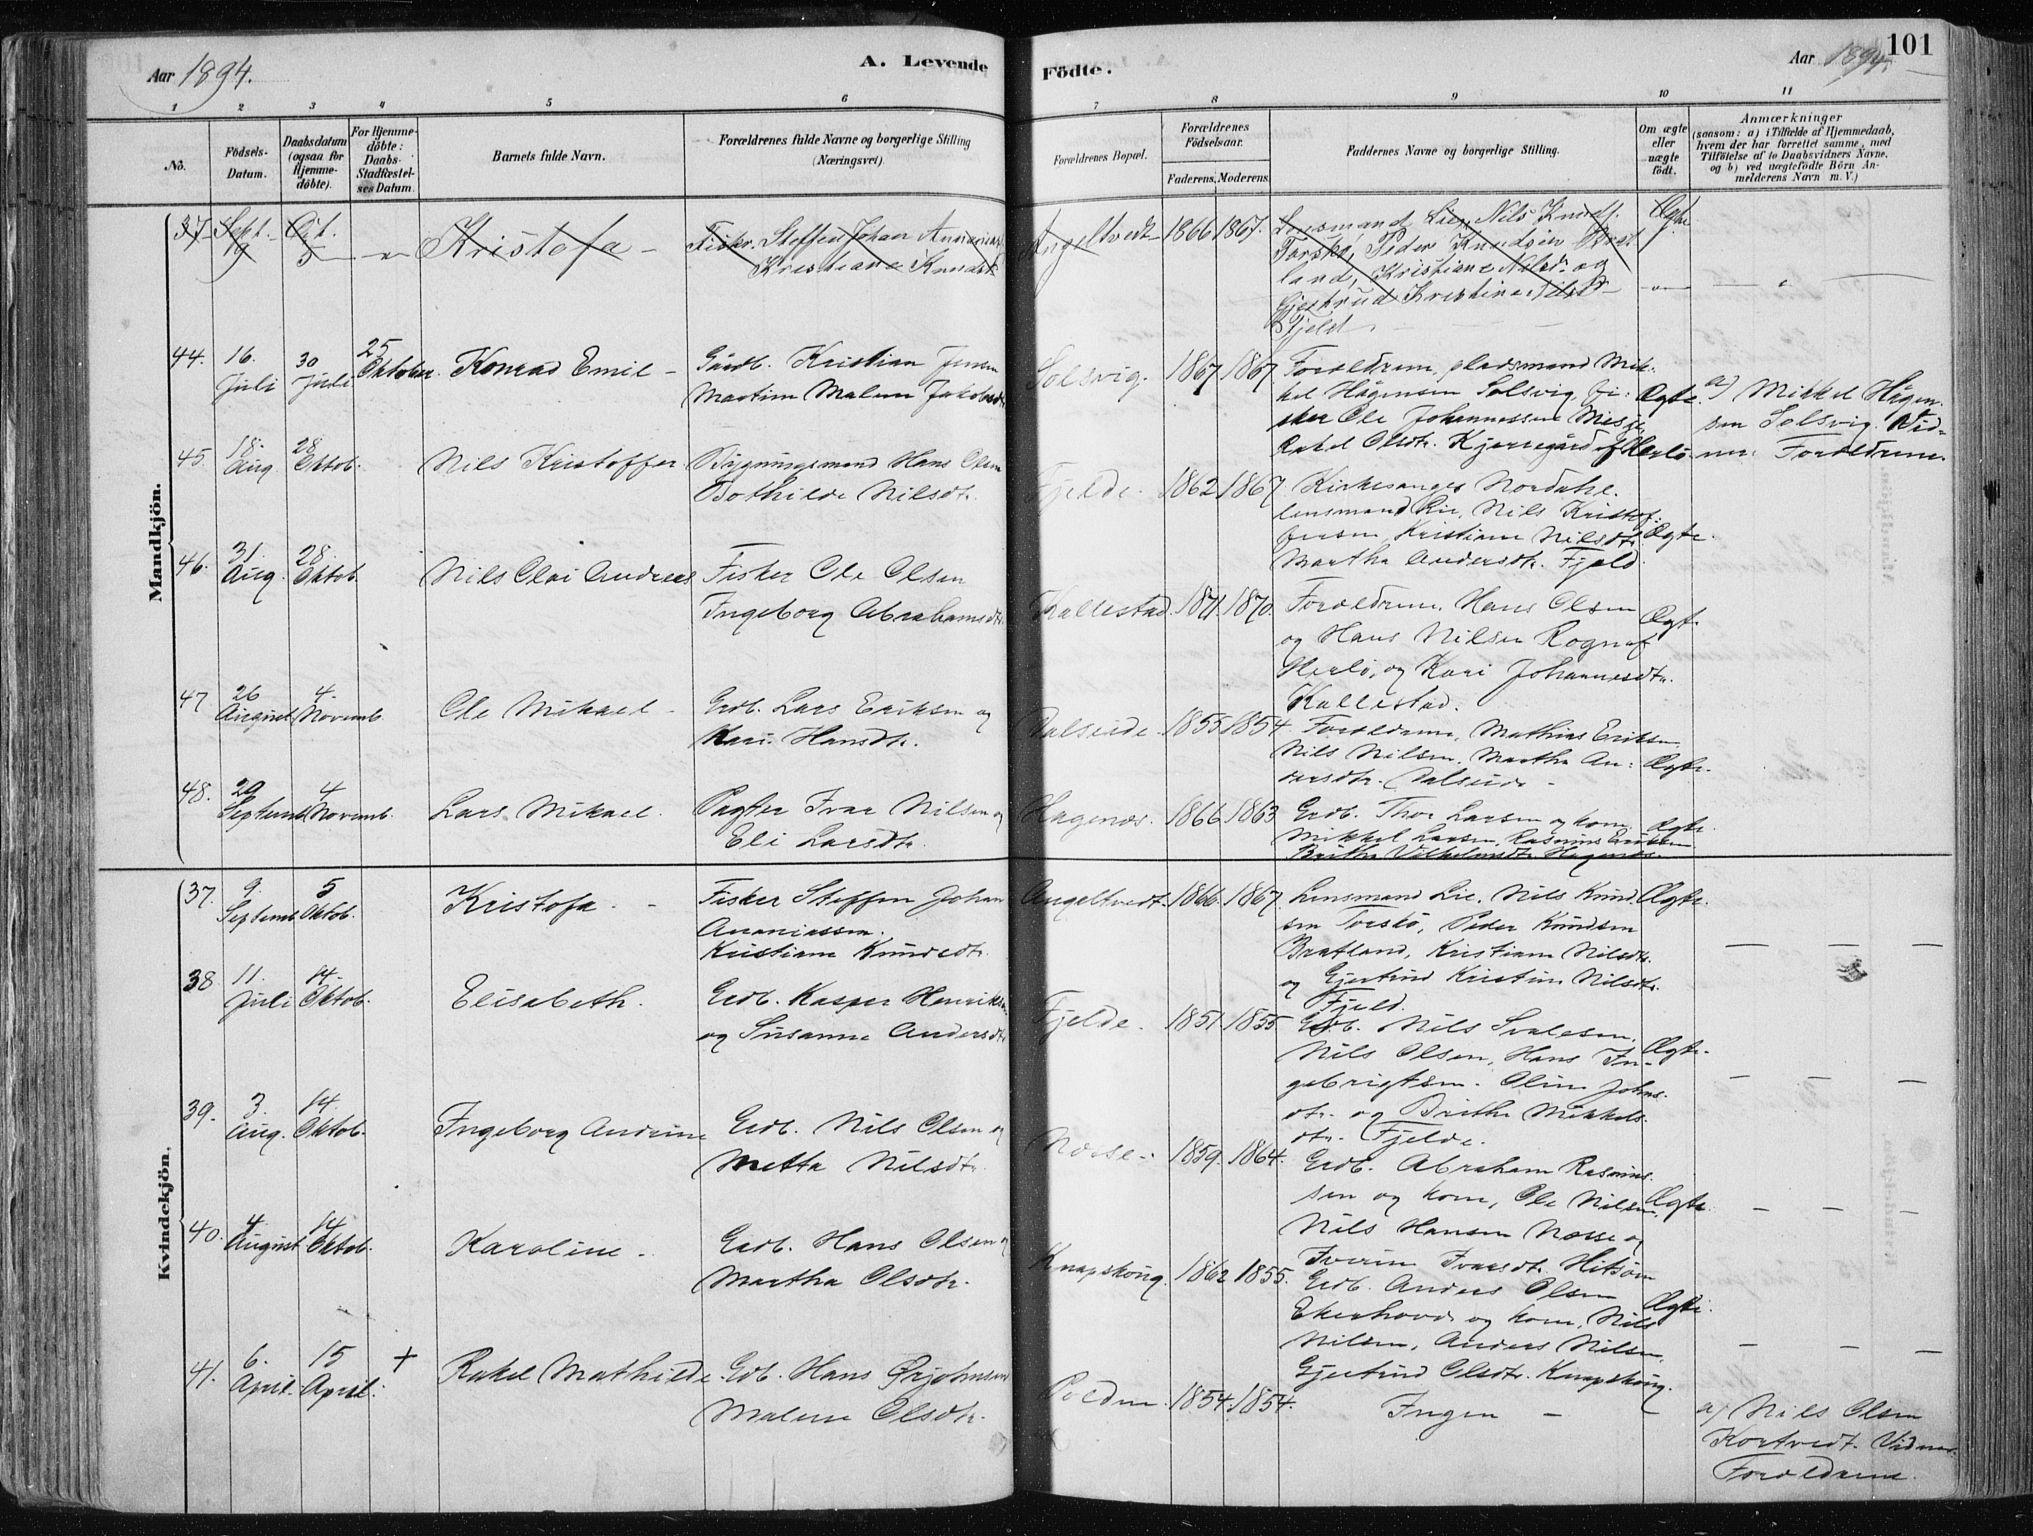 Aar 1894.
A. Levende
Födte.
Aar 1894.
101
1 2 3 4 5 6 7 8 9 10 11
No.
Födsels-
Datum.
Daabsdatum
(ogsaa for
Hjemme-
döbte).
For Hjemme-
döbte:
Daabs-
Stadfæstel-
ses Datum.
Barnets fulde Navn.
Forældrenes fulde Navne og borgerlige Stilling
(Næringsvei)
Forældrenes Bopæl.
Forældrenes
Födselsaar.
Faderens. Moderens.
Faddernes Navne og borgerlige Stilling.
Om ægte
eller
uægte
födt.
Anmærkninger
(saasom: a) i Tilfælde af Hjemmedaab,
hvem der har forrettet samme, med
Tilföielse af to Daabsvidners Navne,
og b) ved uægtefödte Börn An-
melderens Navn m. V.)
Mandkjön.
37 Sept. 19 Oct. 5 Kristofa
Fisker Steffen Johan
Kristiane Knudsdt
Angeltvedt 1866 1867.
Lensmand Lie, Nils Knuds.
Torskø, Peder Knudsen Brat
land, Kristiane Nilsdr. og
Gjertrud Kristine Nilsd
Fjeld
Ægte
44. 16. Juli 30 Juli 25 Oktober Konrad Emil
Gårdb. Kristian Jensen
Martine Malene Jakobsdt.
Solsvig. 1867 1867
Foroldrene, pladsmand Mik-
kel Hågensen Solsvig, fi-
sker Ole Johannessen Misje,
Rakel Olsdtr. Kjærregård af Herlø.
Ægte.
a) Mikkel Hågen-
sen Solsvig. Vid-
ner: Foroldrene.
45. 18. Aug. 28 Oktob. Nils Kristoffer.
Bygningsmand Hans Olsen
Bothilde Nilsdtr.
Fjelde. 1862 1867.
Kirkesanger Nordahl.
lensmand Lie, Nils Kristof-
fersen, Kristiane Nilsdtr.
Martha Andersdtr. Fjeld
Ægte.
46. 31. Aug. 28. Oktob. Nils Olai Andreas
Fisker Ole Olsen
Ingeborg Abrahamsdtr.
Kallestad. 1871. 1870.
Foroldrene, Hans Olsen
og Hans Nilsen Rogn af
Herlö, og Kari Johannesdtr.
Kallestad.
Ægte
47 26 August 4. Novemb. Ole Mikael
Grdb. Lars Eriksen og
Kari Hansdtr.
Dalseide. 1855 1854.
Foroldrene, Mathias Eriksen,
Nils Nilsen, Martha An-
dersdtr. Dalseide
Ægte.
48. 29 Septemb. 4 Novemb. Lars Mikael.
Pagter Ivar Nilsen og
Eli Larsdtr.
Hagenæs. 1866 1863
Grdb. Thor Larsen og kone,
Mikkel Larsen, Rasmus Eriksen
Britha Vilhelmsdtr. Hagenæs.
Ægte.
Kvindekjön.
37. 9. Septemb. 5 Oktob. Kristofa.
Fisker Steffen Johan
Ananiassen.
Kristiane Knudsdtr.
Angeltvedt. 1866. 1867
Lensmand Lie, Nils Knud
sen Torskø, Peder Knudsen
Bratland, Kristiane Nilsdtr.
og Gjertrud Kristine Nilsdtr.
Fjeld.
Ægte.
38 11. Juli 14. Oktob. Elisabeth.
Grdb. Kasper Henriksen
og Susanne Andersdtr
Fjelde. 1851. 1855
Grdb. Nils Svalesen,
Nils Olsen, Hans In-
gebrigtsen. Oline Johns-
dtr. og Brithe Mikkels-
dtr. Fjelde.
Ægte.
39. 3. Aug. 14. Oktob. Ingeborg Andrine
Grdb. Nils Olsen og
Metta Nilsdtr.
Næsse. 1859. 1864.
Grdb. Abraham Rasmus
sen og kone, Ole Nilsen,
Nils Hansen Næsse og
Iverine Ivarsdtr. Hitsöen
Ægte.
40. 4. August 14 Oktob. Karoline.
Grdb. Hans Olsen og
Martha Olsdtr.
Knapskoug. 1862 1855.
Grdb. Anders Olsen
Ekerhovd og kone, Nils
Nilsen, Anders Nilsen,
Gjertrud Olsdtr. Knapskoug.
Ægte.
41. 6. April. 15 April. + Rakel Mathilde.
Grdb. Hans Ørjohnsen
Malene Olsdtr.
Polden. 1854. 1854.
Ingen
a) Nils Olsen
Kortvedt. Vidner
Foroldrene.